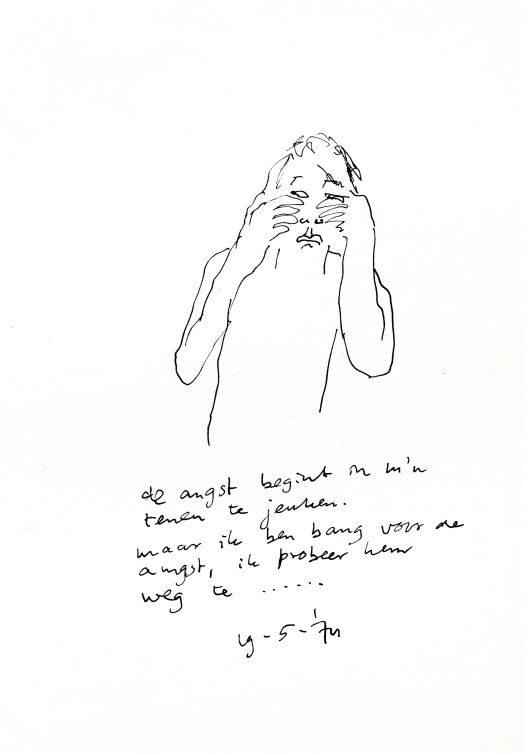 de angst begint in m'n
tenen te jeuken.
maar ik ben bang voor de
angst, ik probeer hem
weg te ......